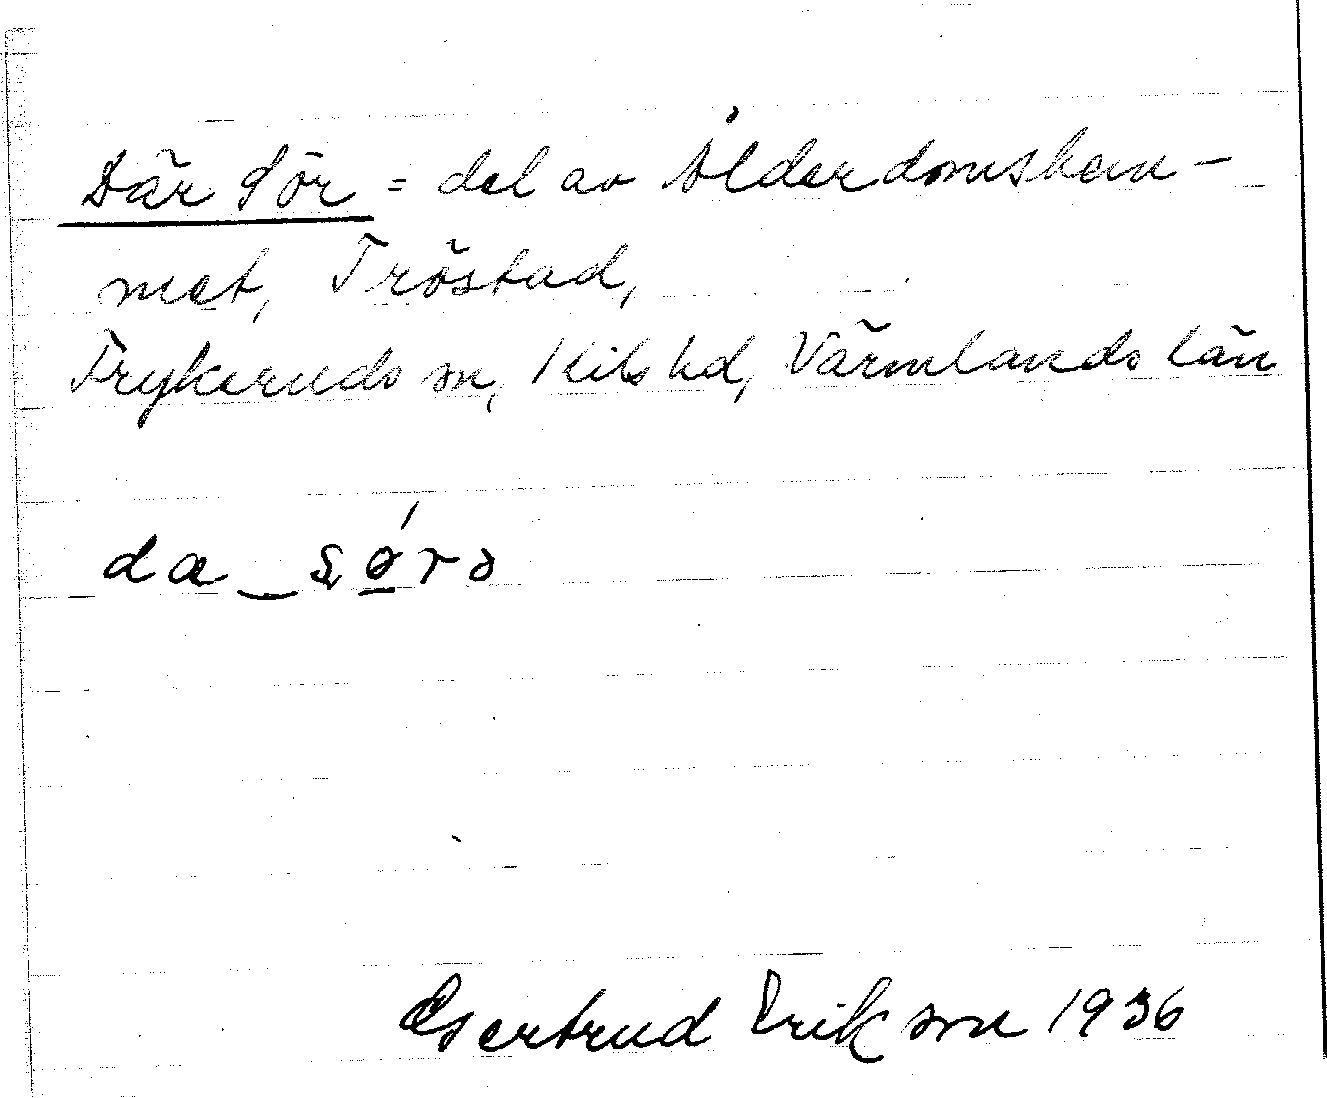 Där Sör = del av Ålderdomshem-
met, Tröstad,
Frykeruds sn, Kils hd, Värmlands län
da_sǿrə
Gertrud Erikson 1936